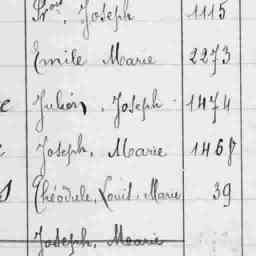 Joseph 1115
Emile Marie 2273
Julien, Joseph 1474
Joseph, Marie 1467
Théodule, Louis, Marie 39
Joseph, Marie